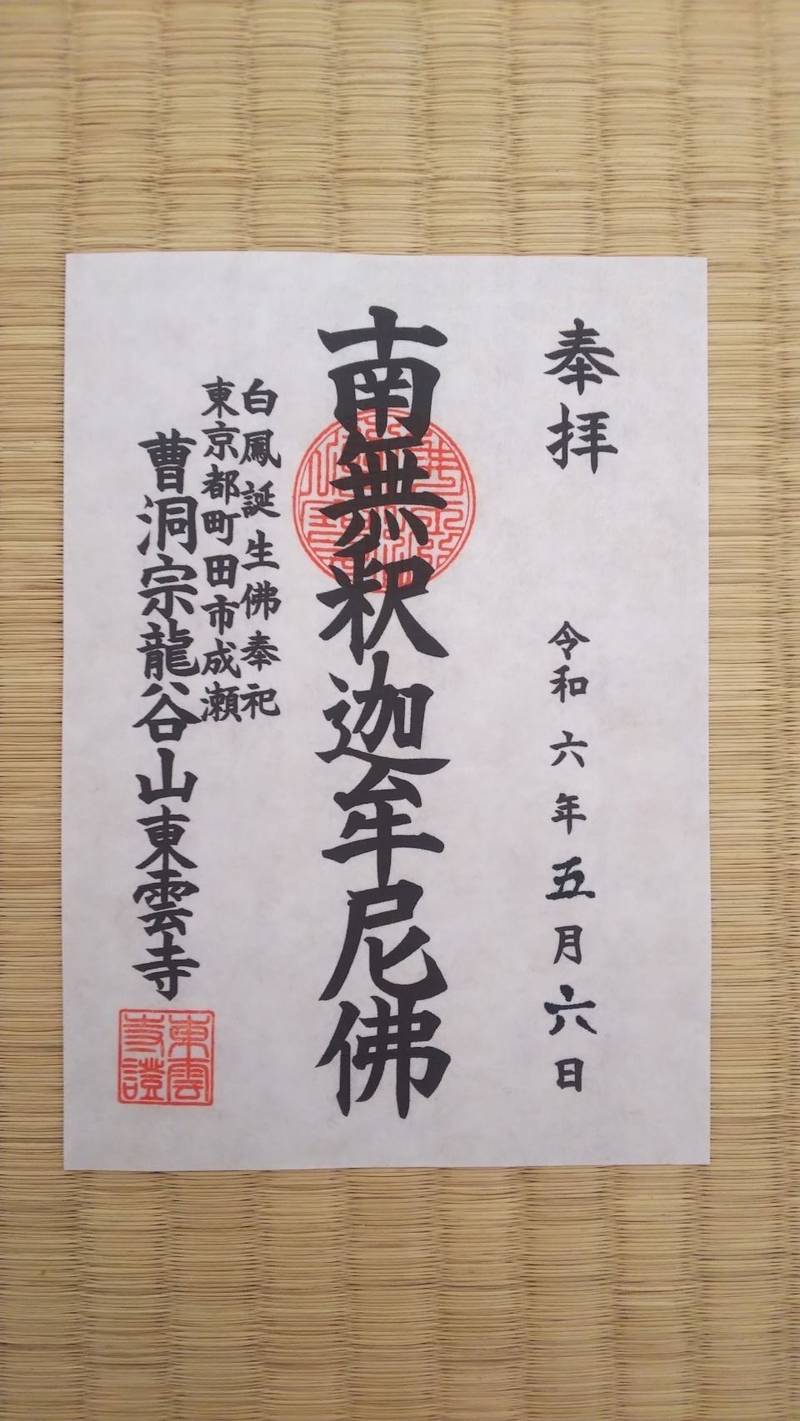 奉拝
令和六年五月六日
南無釈迦牟尼佛
白鳳誕生佛奉祀
東京都町田市成瀬
曹洞宗龍谷山東雲寺
東雲
寺證